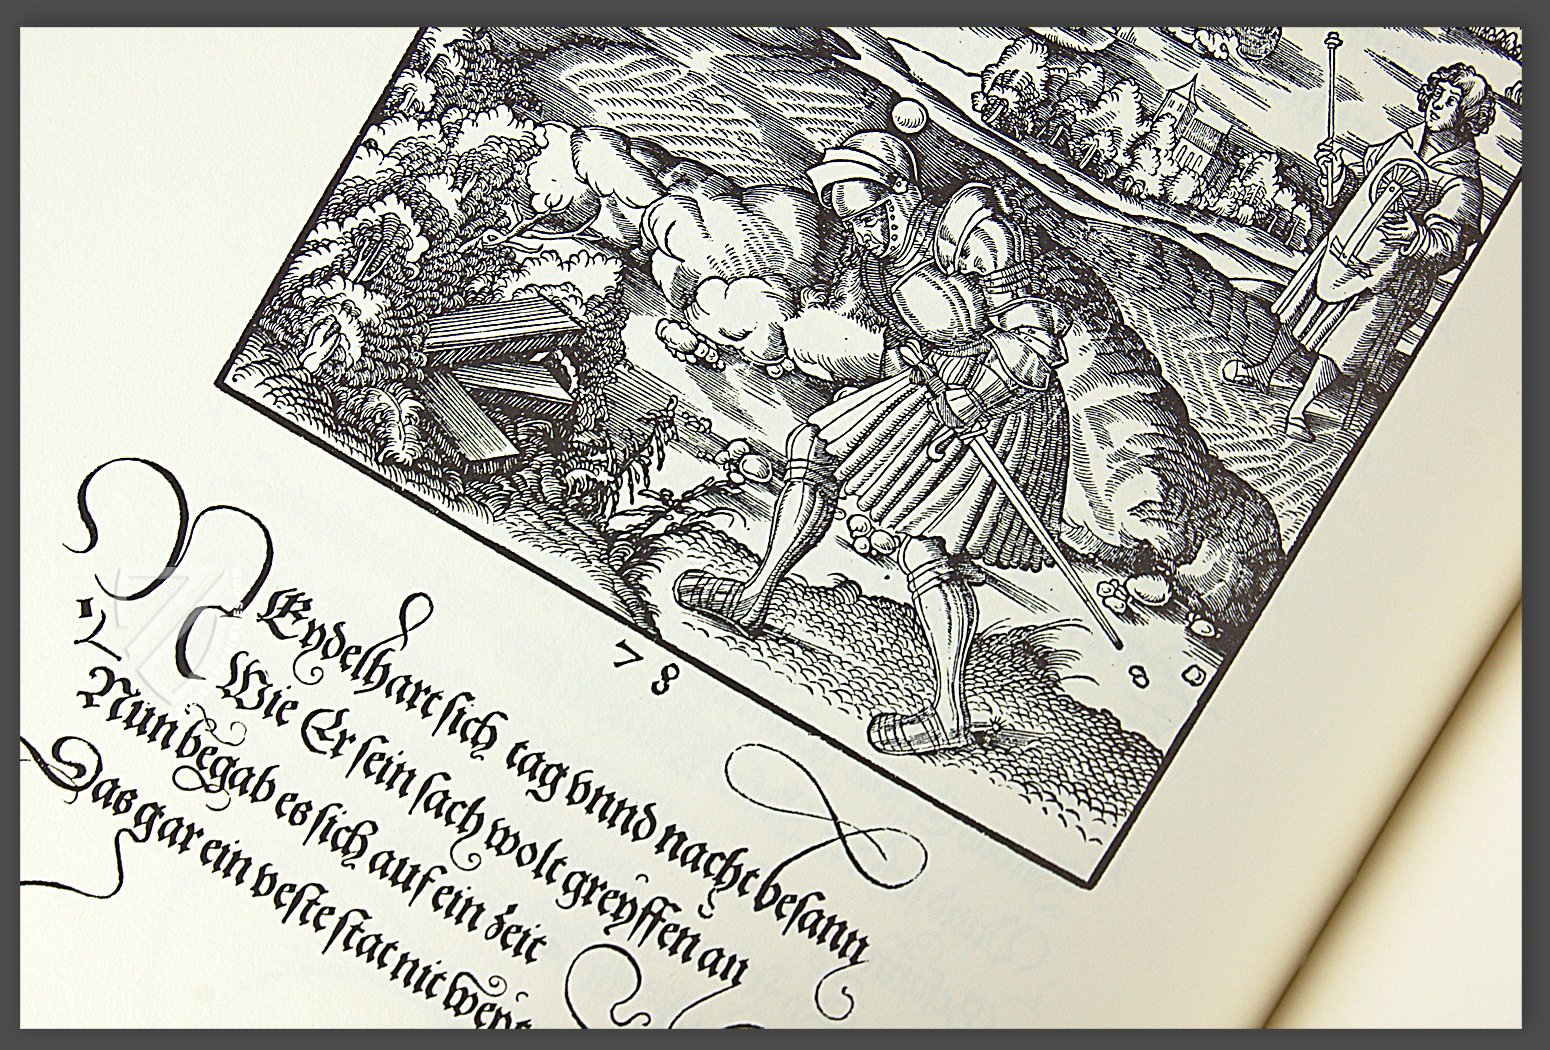 78
80
Neydelhart sich tag vnnd nacht besann
Wie Er sein sach wolt greyffen an
Nun begab es sich auf ein zeit
Das gar ein veste stat nit weyt